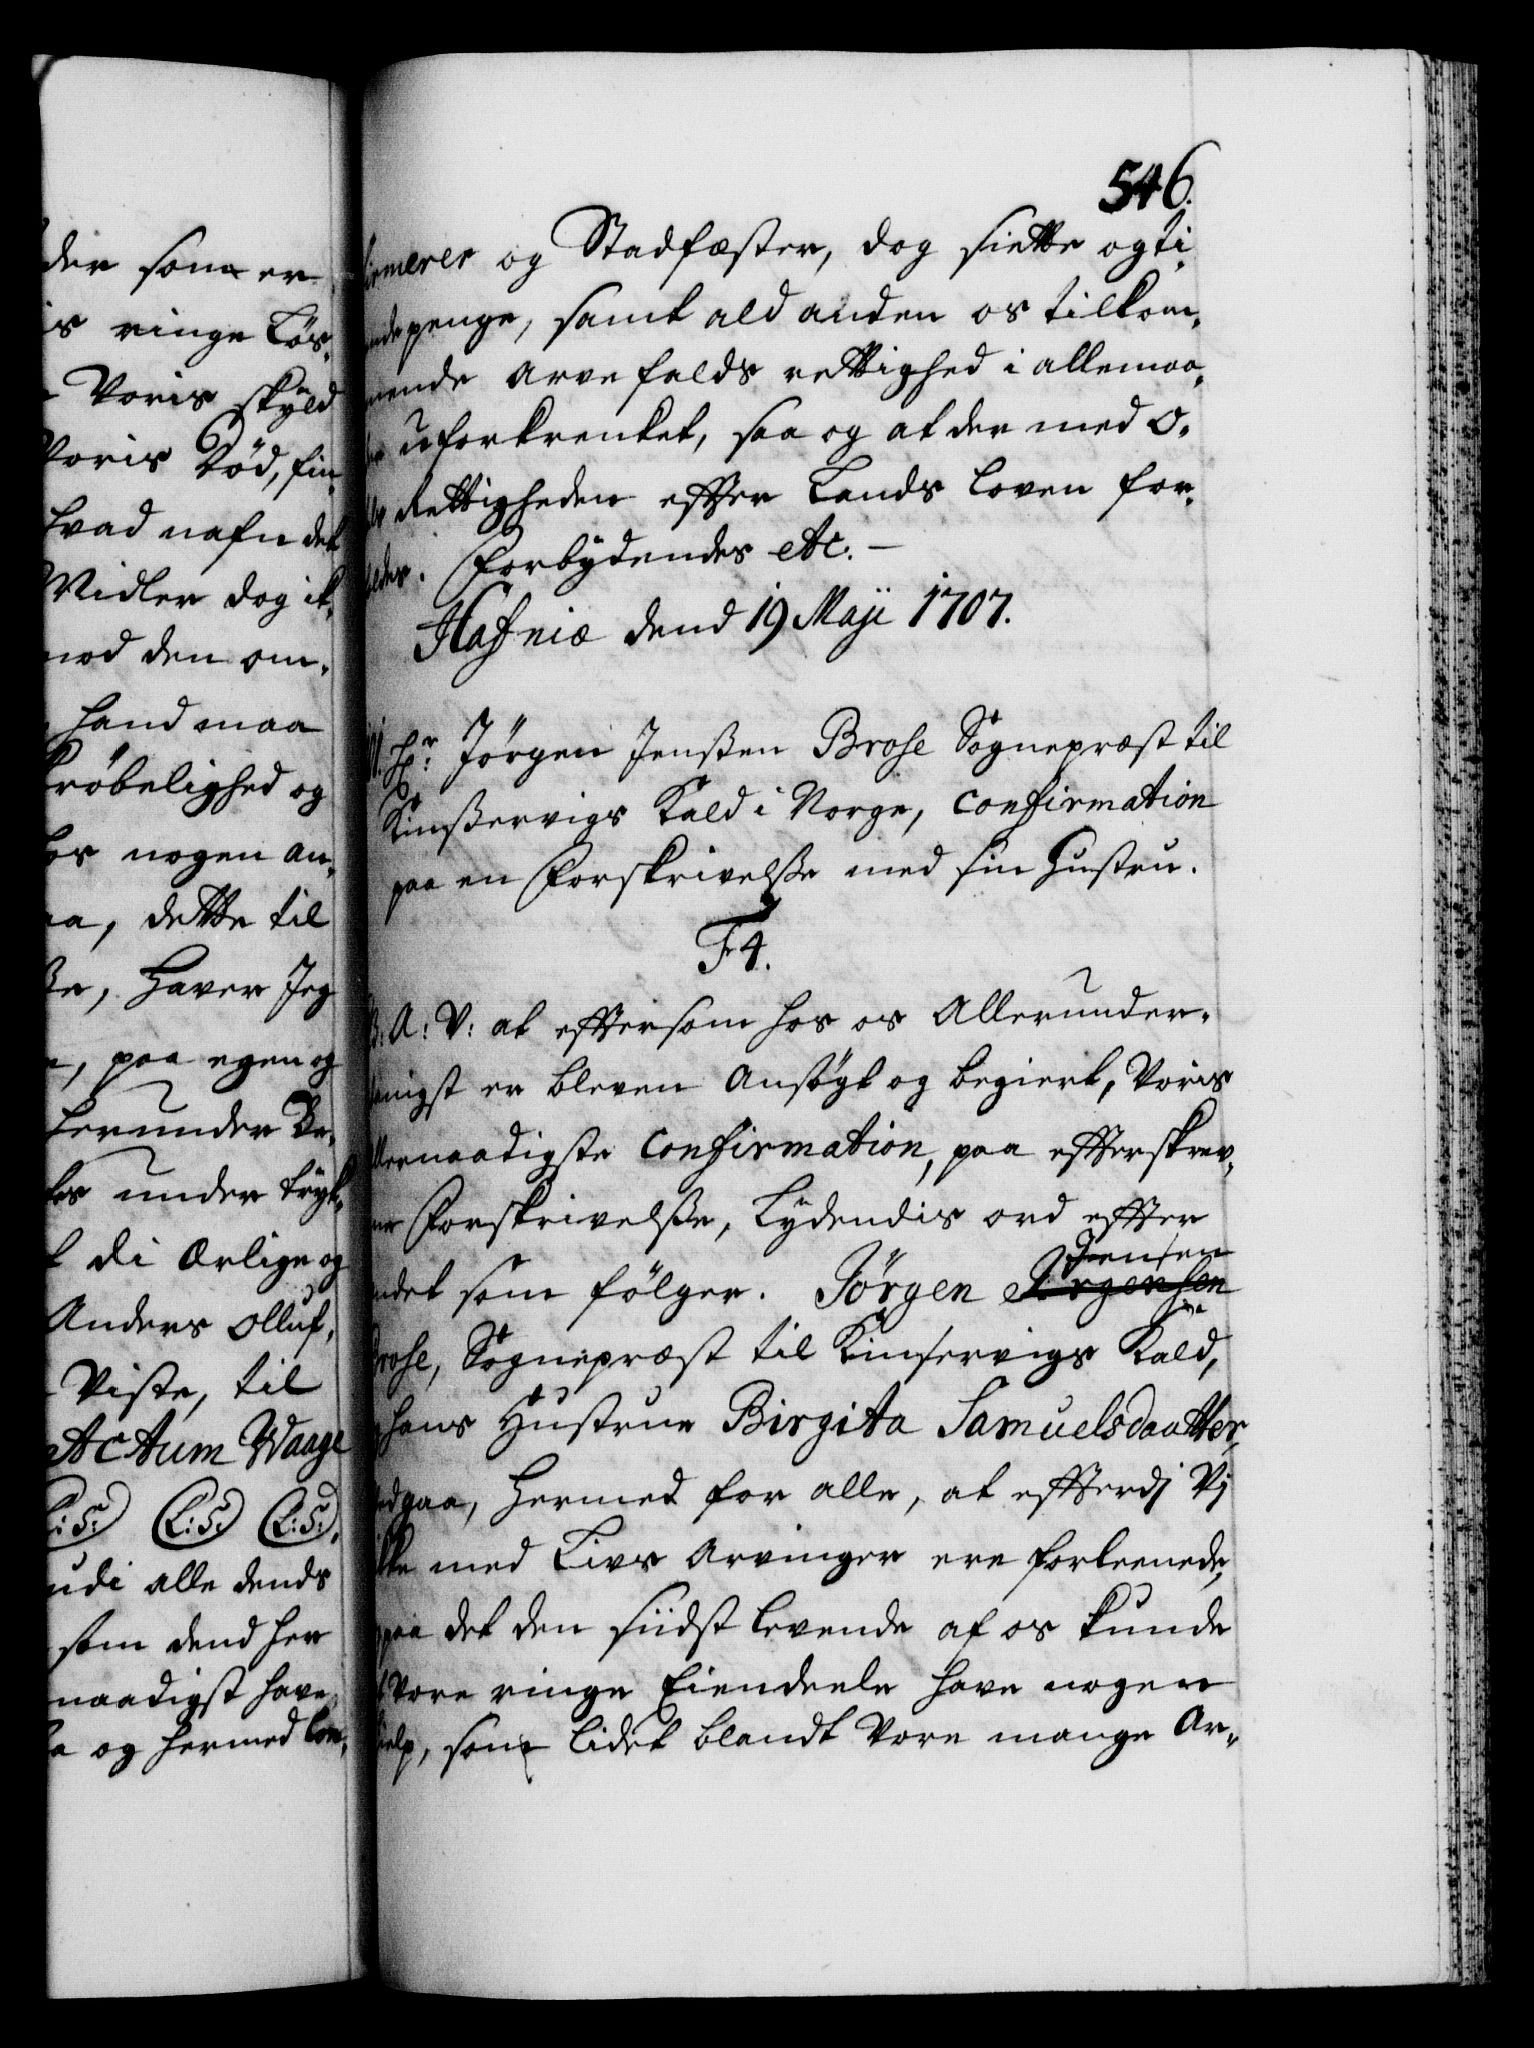 der som er
is ringe Løs,
Voris skÿld
Voris Død, fin,
hvad nafn det
Midler dog ik,
mod den om,
hand maa
krøbelighed og
hos nogen an,
dette til
haver Jeg
paa egen og
herunder Be,
under tryk,
di Ærlige og
Anders Olluf,
Viste, til
Actum Waage
(L:S:) (L:S:) (L:S:).
udi alle dends
som dend her
naadigst have
og hermed Con,
546.
firmerer og Stadfæster, dog siette og ti,
ende penge, samt ald anden os tilkom,
mende Arvefalds rettighed i allemaa,
uforkrenket, saa og at der med O,
Rettigheden effter Lands Loven for,
holdes. Forbÿdendes etc. —
Hafniæ dend 19 Maji 1707.
Hr: Jørgen Jenßen Brose Sognepræst til
Kinßervigs Kald i Norge, Confirmation
paa en Forskrivelße med sin Hustru.
F4.
G: A: V: at efftersom hos os Allerunder,
danigst er bleven Ansøgt og begiert, Voris
allernaadigste Confirmation, paa effterskrev,
ne Forskrivelße, Lÿdendis ord effter
andet som følger. Jørgen Jensen Jørgensen
Brose, Sognepræst til Kinservigs Kald,
hans Hustrue Birgita Samuelsdaatter,
Vedgaa, hermed for alle, at efftterdj Vj
ikke med Livs Arvinger ere forleenede,
paa det den siidst levende af os kunde
Vore ringe Eiendeele have nogen
hielp, som lidet blandt Vore mange Ar,